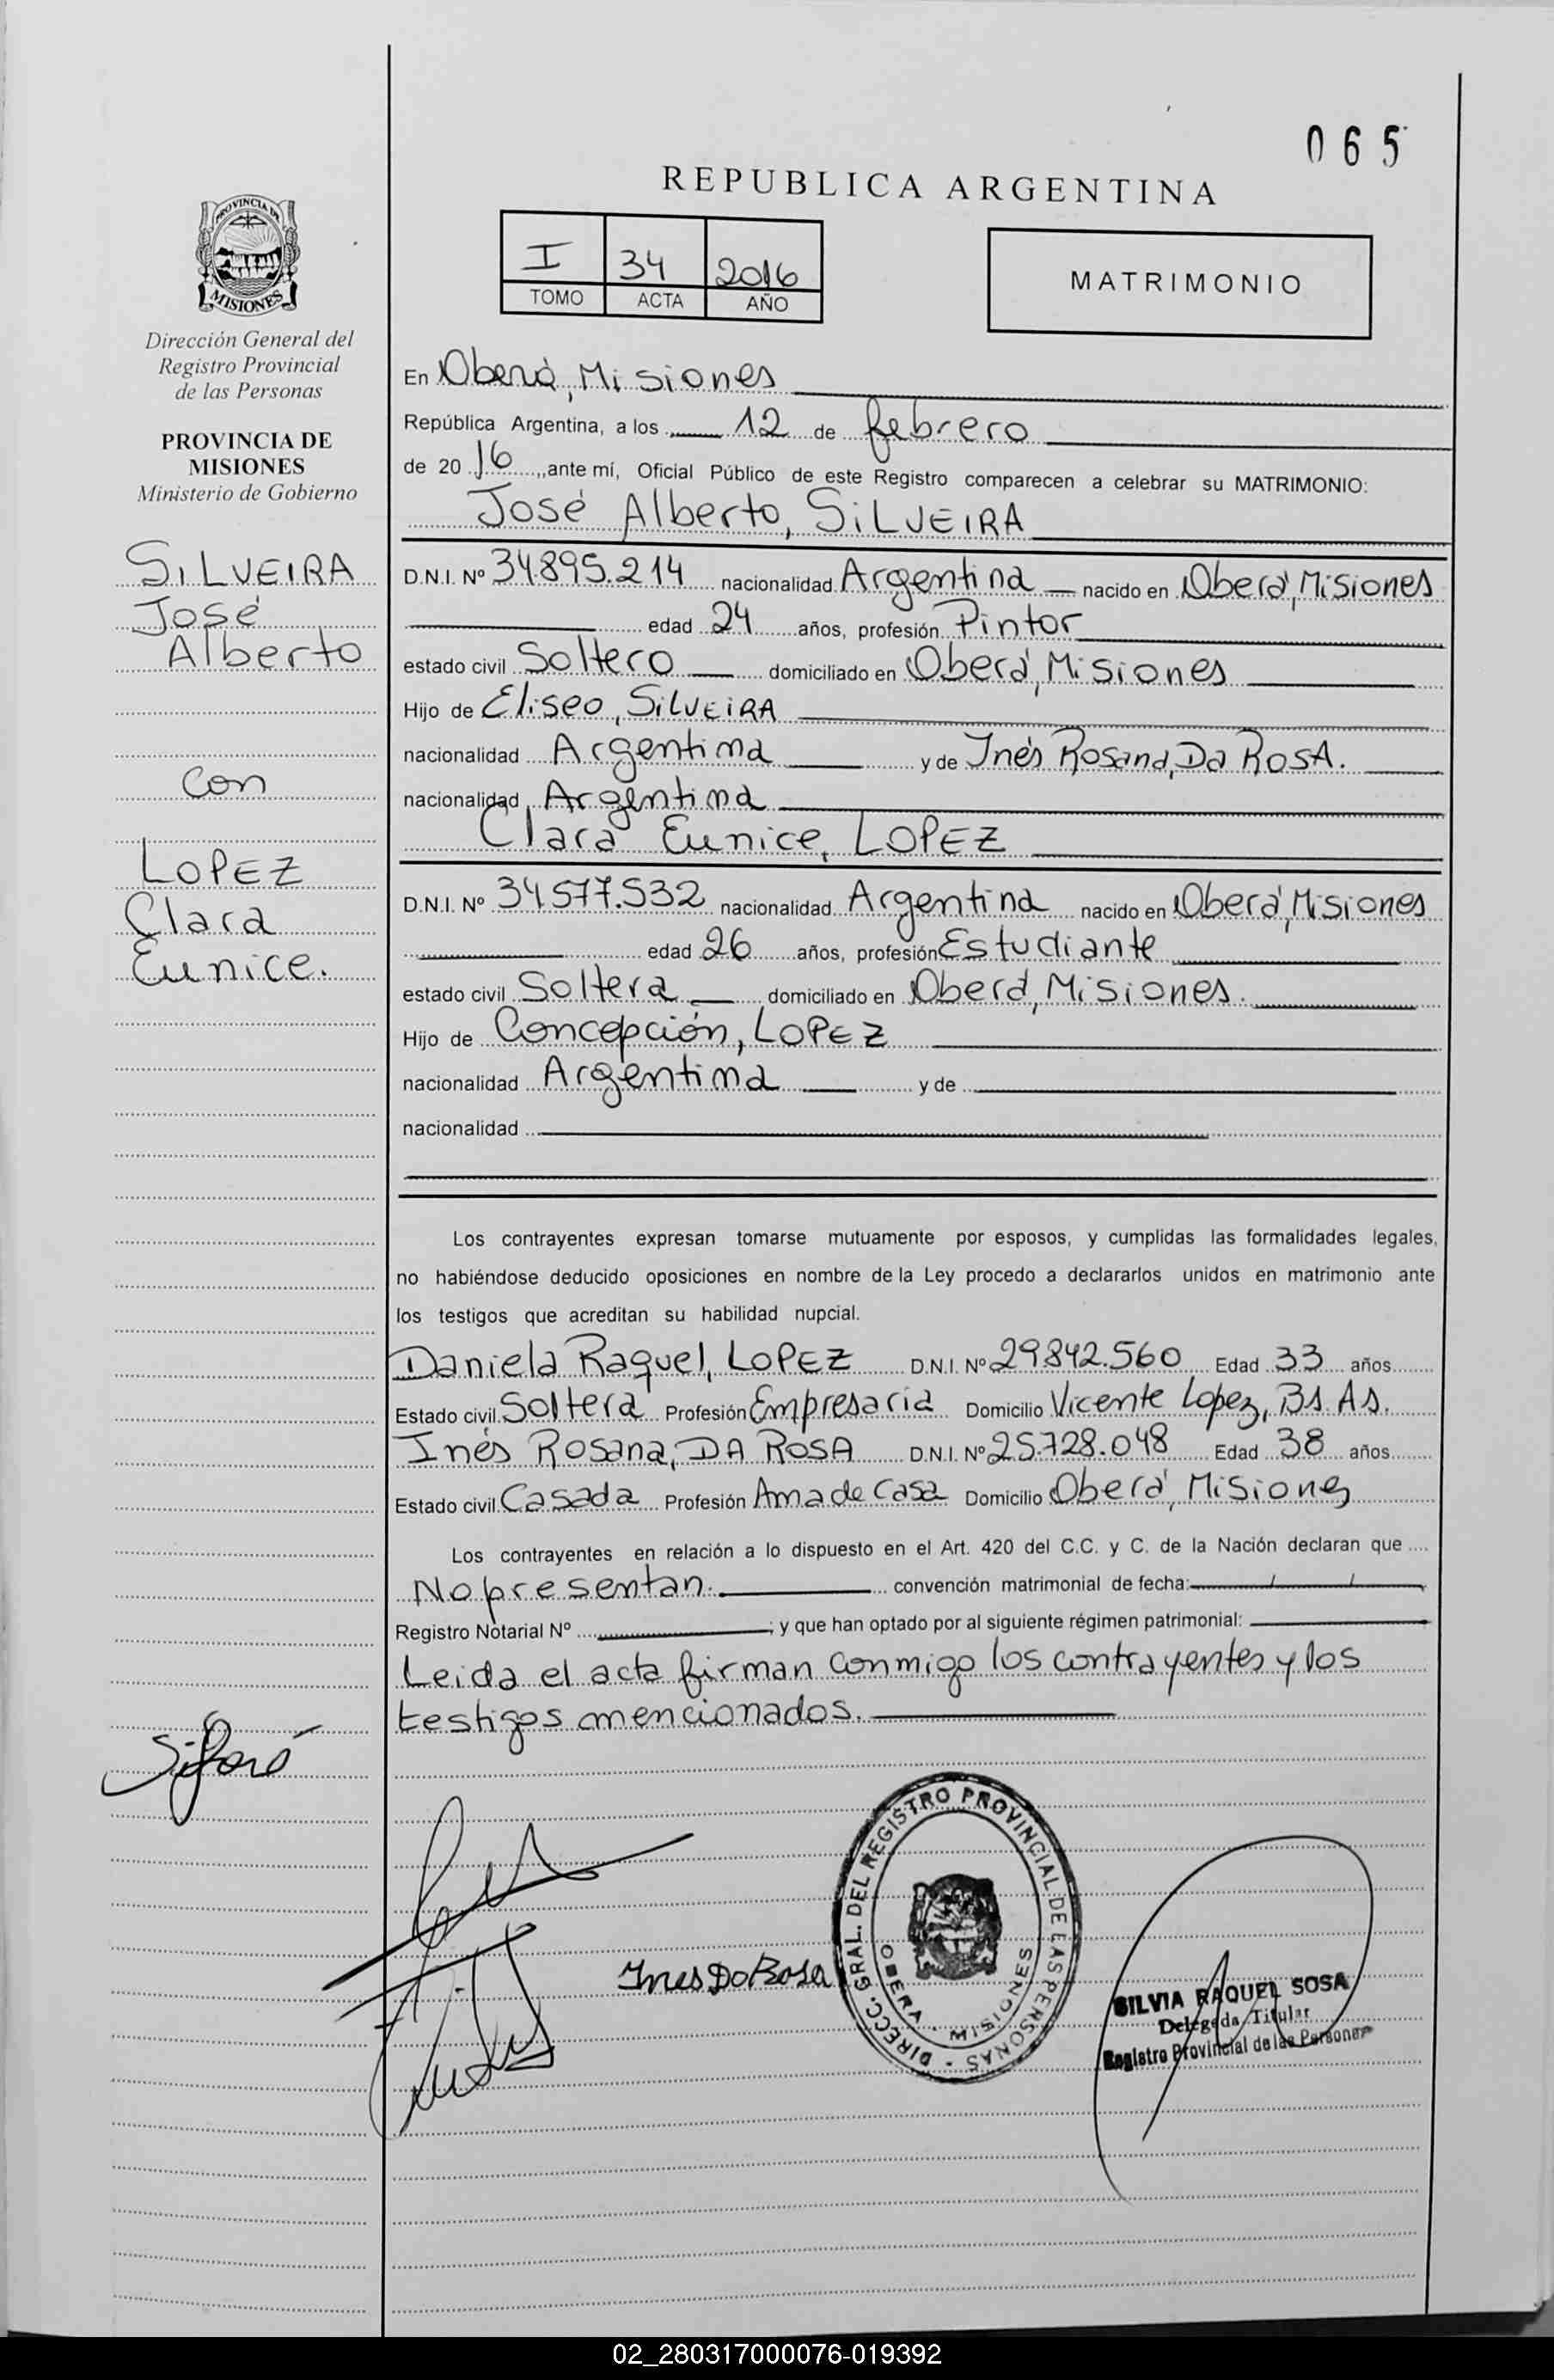 065
REPUBLICA ARGENTINA
I 34 2016
TOMO ACTA AÑO
MATRIMONIO
PROVINCIA DE
MISIONES
Dirección General del
Registro Provincial
de las Personas
PROVINCIA DE
MISIONES
Ministerio de Gobierno
SiLVEIRA
José
Alberto
Con
LOPEZ
Clara
Eunice.
En Oberá, Misiones
República Argentina, a los 12 de febrero
de 2016, ante mí, Oficial Público de este Registro comparecen a celebrar su MATRIMONIO:
José Alberto, SiLVEIRA
D.N.I. Nº 34895.214 nacionalidad Argentina nacido en Oberá, Misiones
edad 24 años, profesión Pintor
estado civil Soltero domiciliado en Oberá, Misiones
Hijo de Eliseo, SiLVEiRA
nacionalidad Argentina y de Inés Rosana, Da RosA.
nacionalidad Argentina
Clara Eunice, LOPEZ
D.N.I. Nº 34.577.532 nacionalidad Argentina nacido en Oberá, Misiones
edad 26 años, profesión Estudiante
estado civil Soltera domiciliado en Oberá, Misiones.
Hijo de Concepción, LOPEZ
nacionalidad Argentina y de
nacionalidad
Los contrayentes expresan tomarse mutuamente por esposos, y cumplidas las formalidades legales,
no habiéndose deducido oposiciones en nombre de la Ley procedo a declararlos unidos en matrimonio ante
los testigos que acreditan su habilidad nupcial.
Daniela Raquel, LOPEZ D.N.I. Nº 29842.560 Edad 33 años
Estado civil Soltera Profesión Empresaria Domicilio Vicente Lopez, Bs. As.
Inés Rosana, DA ROSA D.N.I. Nº 25.728.048 Edad 38 años
Estado civil Casada Profesión Ama de Casa Domicilio Oberá, Misiones
Los contrayentes en relación a lo dispuesto en el Art. 420 del C.C. y C. de la Nación declaran que
No presentan. convención matrimonial de fecha: / /
Registro Notarial Nº ; y que han optado por al siguiente régimen patrimonial:
Leida el acta firman conmigo los contrayentes y los
testigos mencionados.
Ines Da Rosa
DIRECC. GRAL. DEL REGISTRO PROVINCIAL DE LAS PERSONAS
OBERA - MISIONES
SILVIA RAQUEL SOSA
Delegada Titular
Registro Provincial de las Personas
02_280317000076-019392